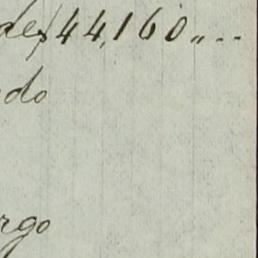 de $44,160,,..
do
rgo